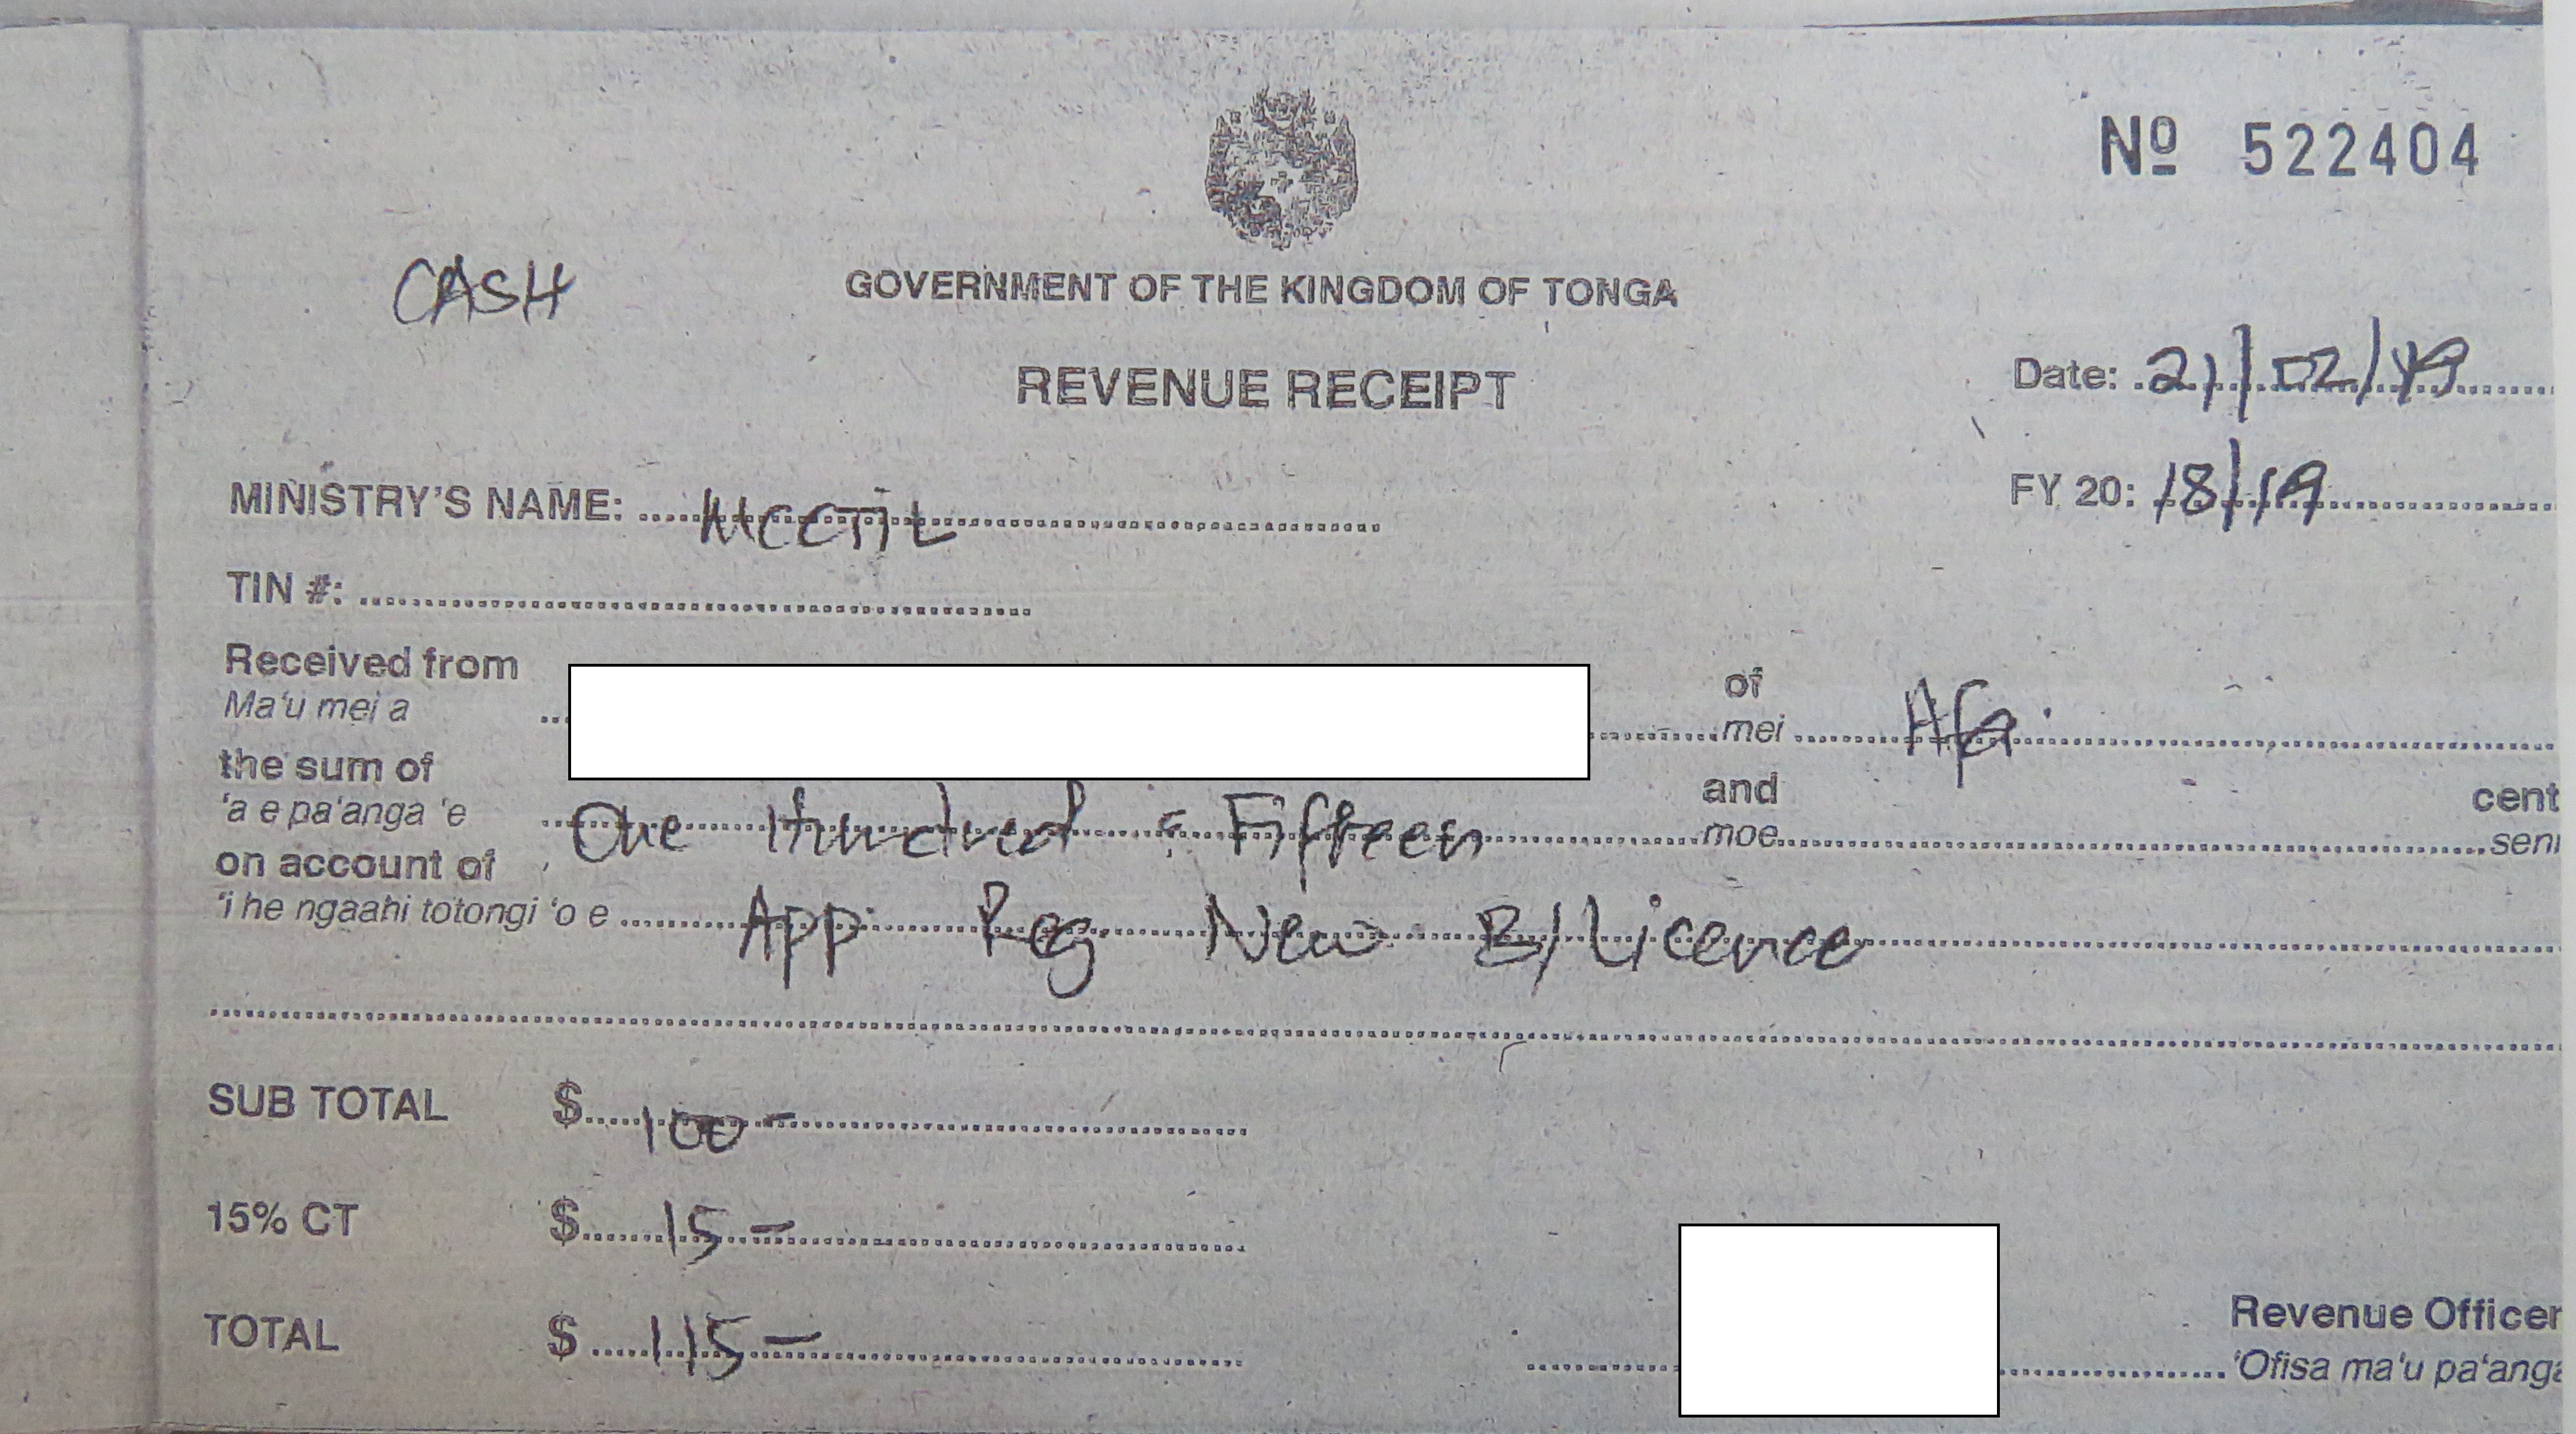 Nº 522404
CASH
GOVERNMENT OF THE KINGDOM OF TONGA
REVENUE RECEIPT
Date: 21/02/19
MINISTRY'S NAME: MCCTIL
FY 20: 18/19
TIN #:
Received from of
Ma'u mei a mei
the sum of and cent
'a e pa'anga 'e One Hundred & Fifteen moe seni
on account of
'i he ngaahi totongi 'o e App Reg New B/Licence
SUB TOTAL $ 100 -
15% CT $ 15 -
TOTAL $ 115 -
Revenue Officer
'Ofisa ma'u pa'anga